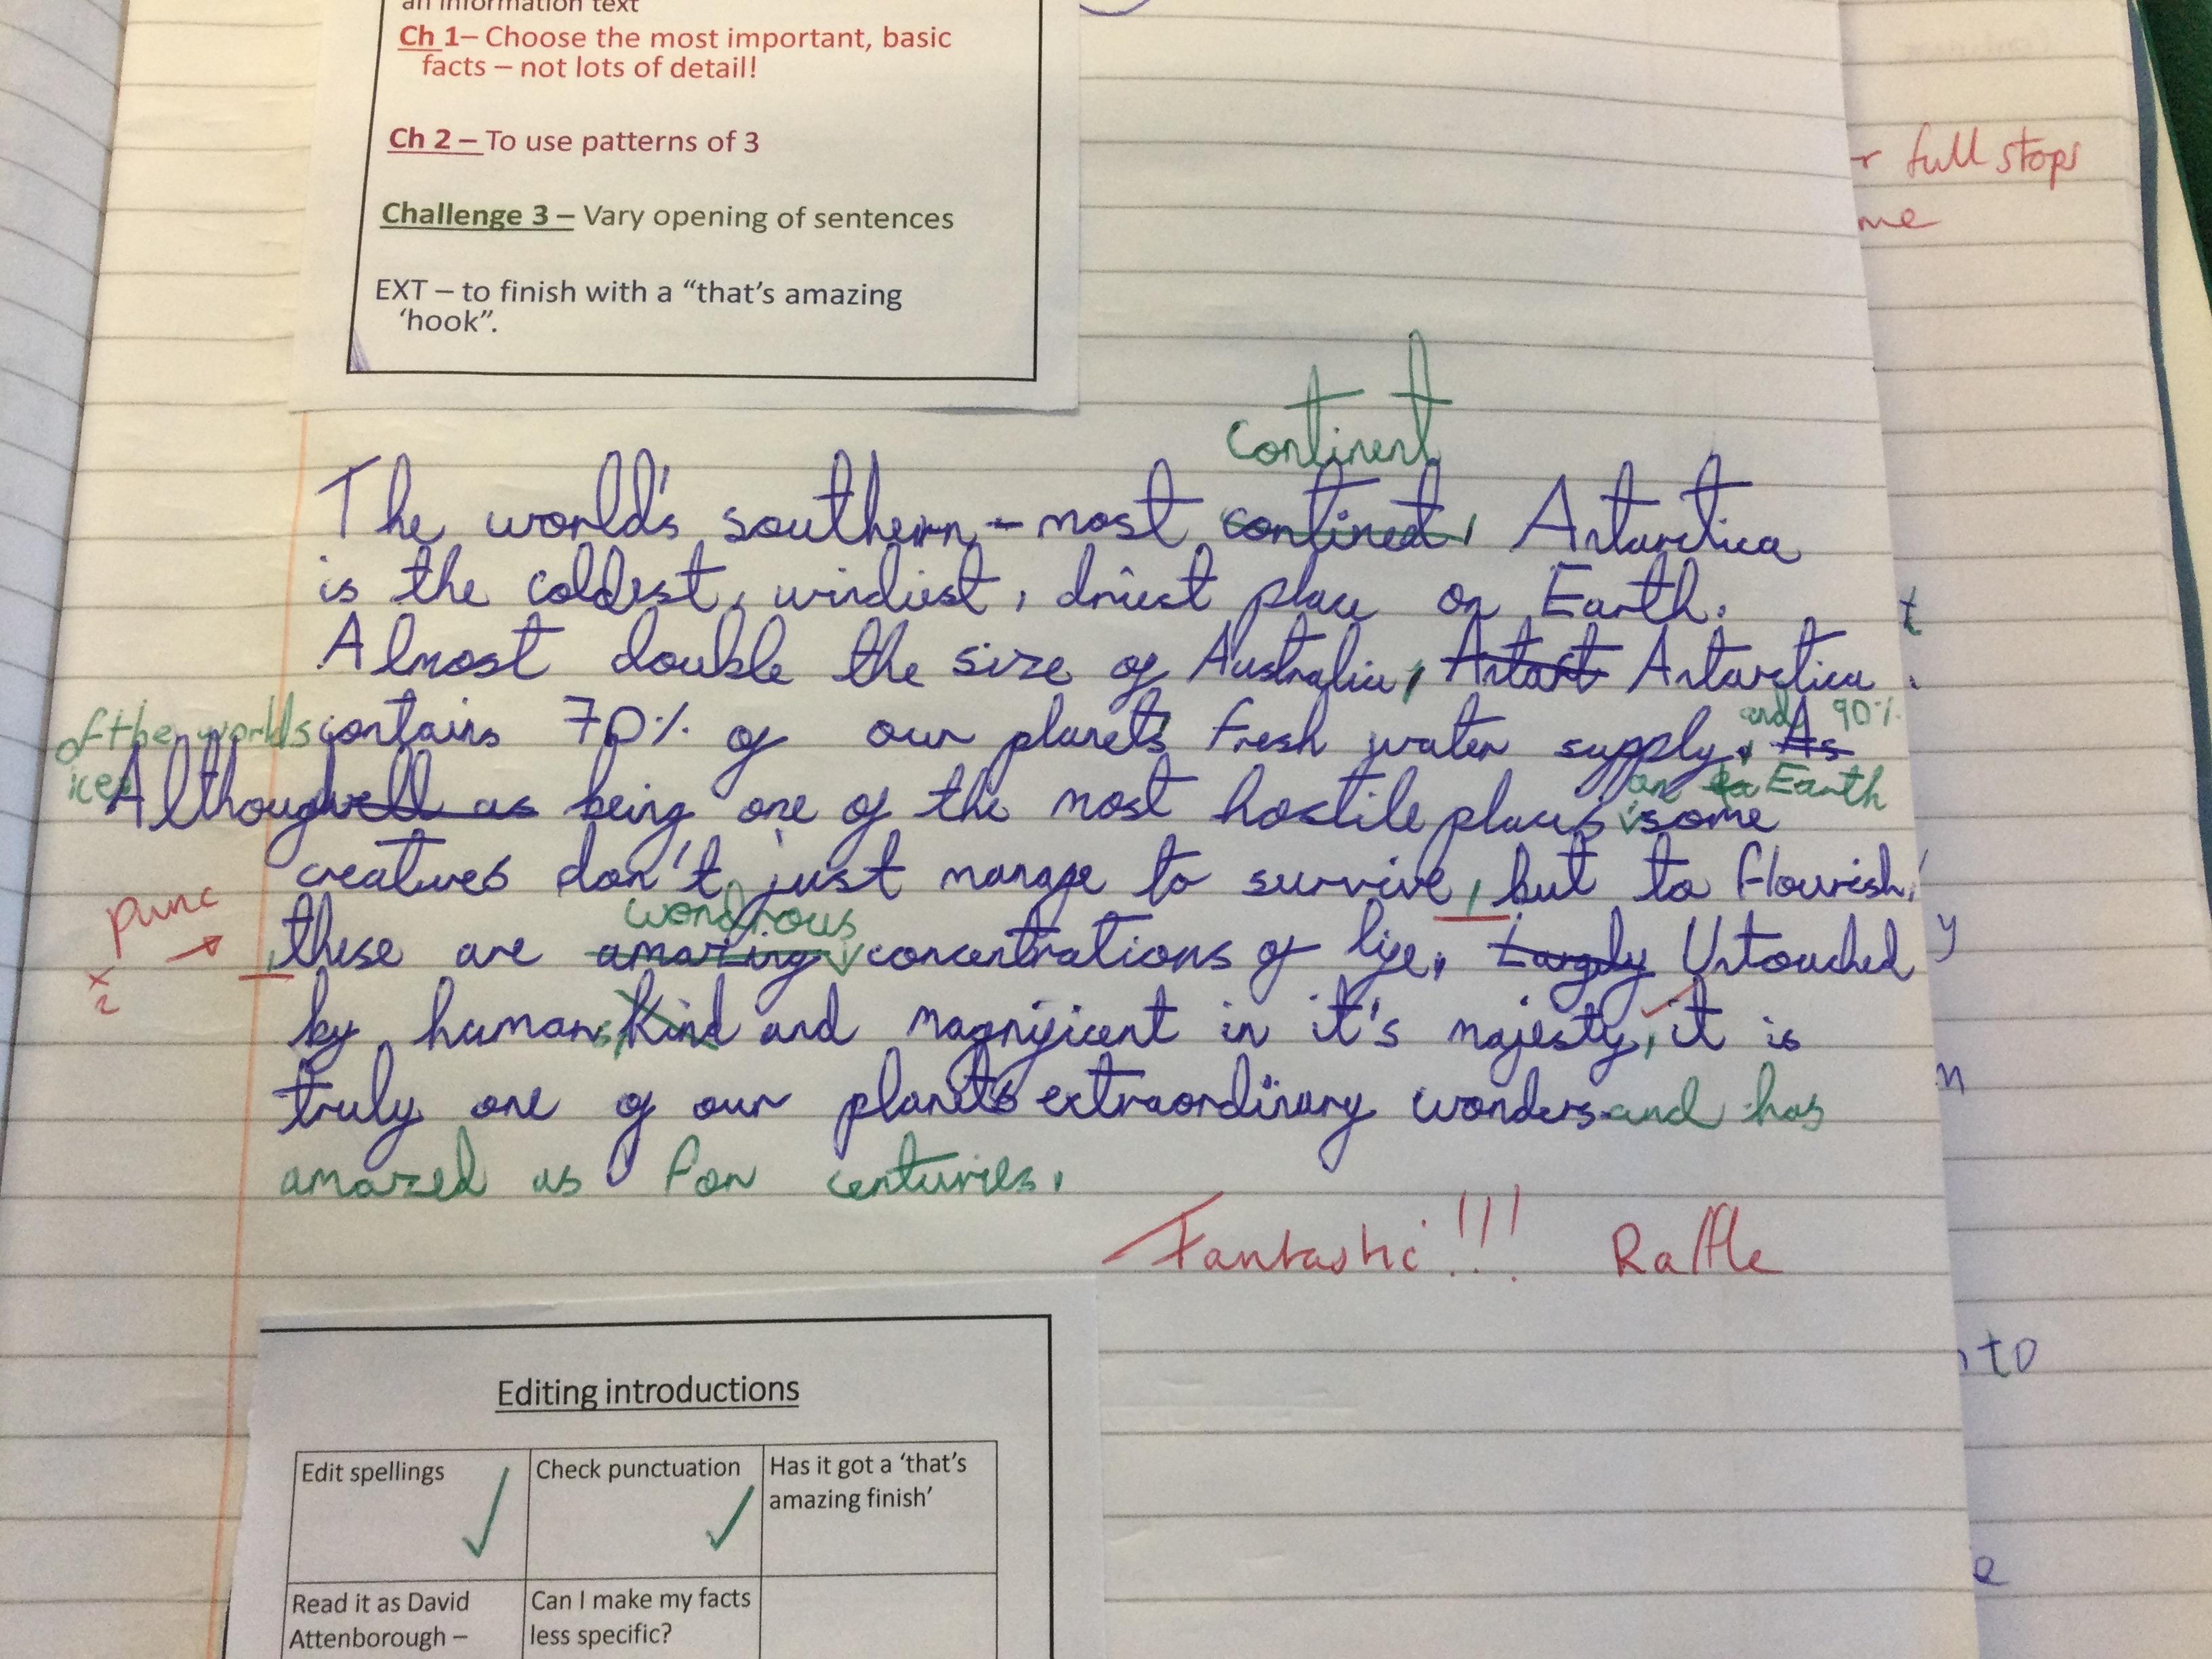 an information text
Ch 1– Choose the most important, basic
facts – not lots of detail!
Ch 2 – To use patterns of 3
Challenge 3 – Vary opening of sentences
EXT – to finish with a “that’s amazing
‘hook”.
full stops
me
continent
The world's southern-most contined, Antarctica
is the coldest, windiest, driest place on Earth.
Almost double the size of Australia, Antarct Antarctica
contains 70% of our planet's fresh water supply. As and 90%
of the worlds
ice.
Although well as being one of the most hostile places on Earth some
creatures don't just manage to survive, but to flourish,
punc
x 2
these are amazing wondrous concentrations of life. Largely Untouched
by humans, kind and magnificent in it's majesty, it is
truly one of our planets extraordinary wonders and has
amazed us for centuries.
Fantastic!!! Raffle
Editing introductions
Edit spellings
Check punctuation
Has it got a ‘that’s
amazing finish’
Read it as David
Attenborough –
Can I make my facts
less specific?